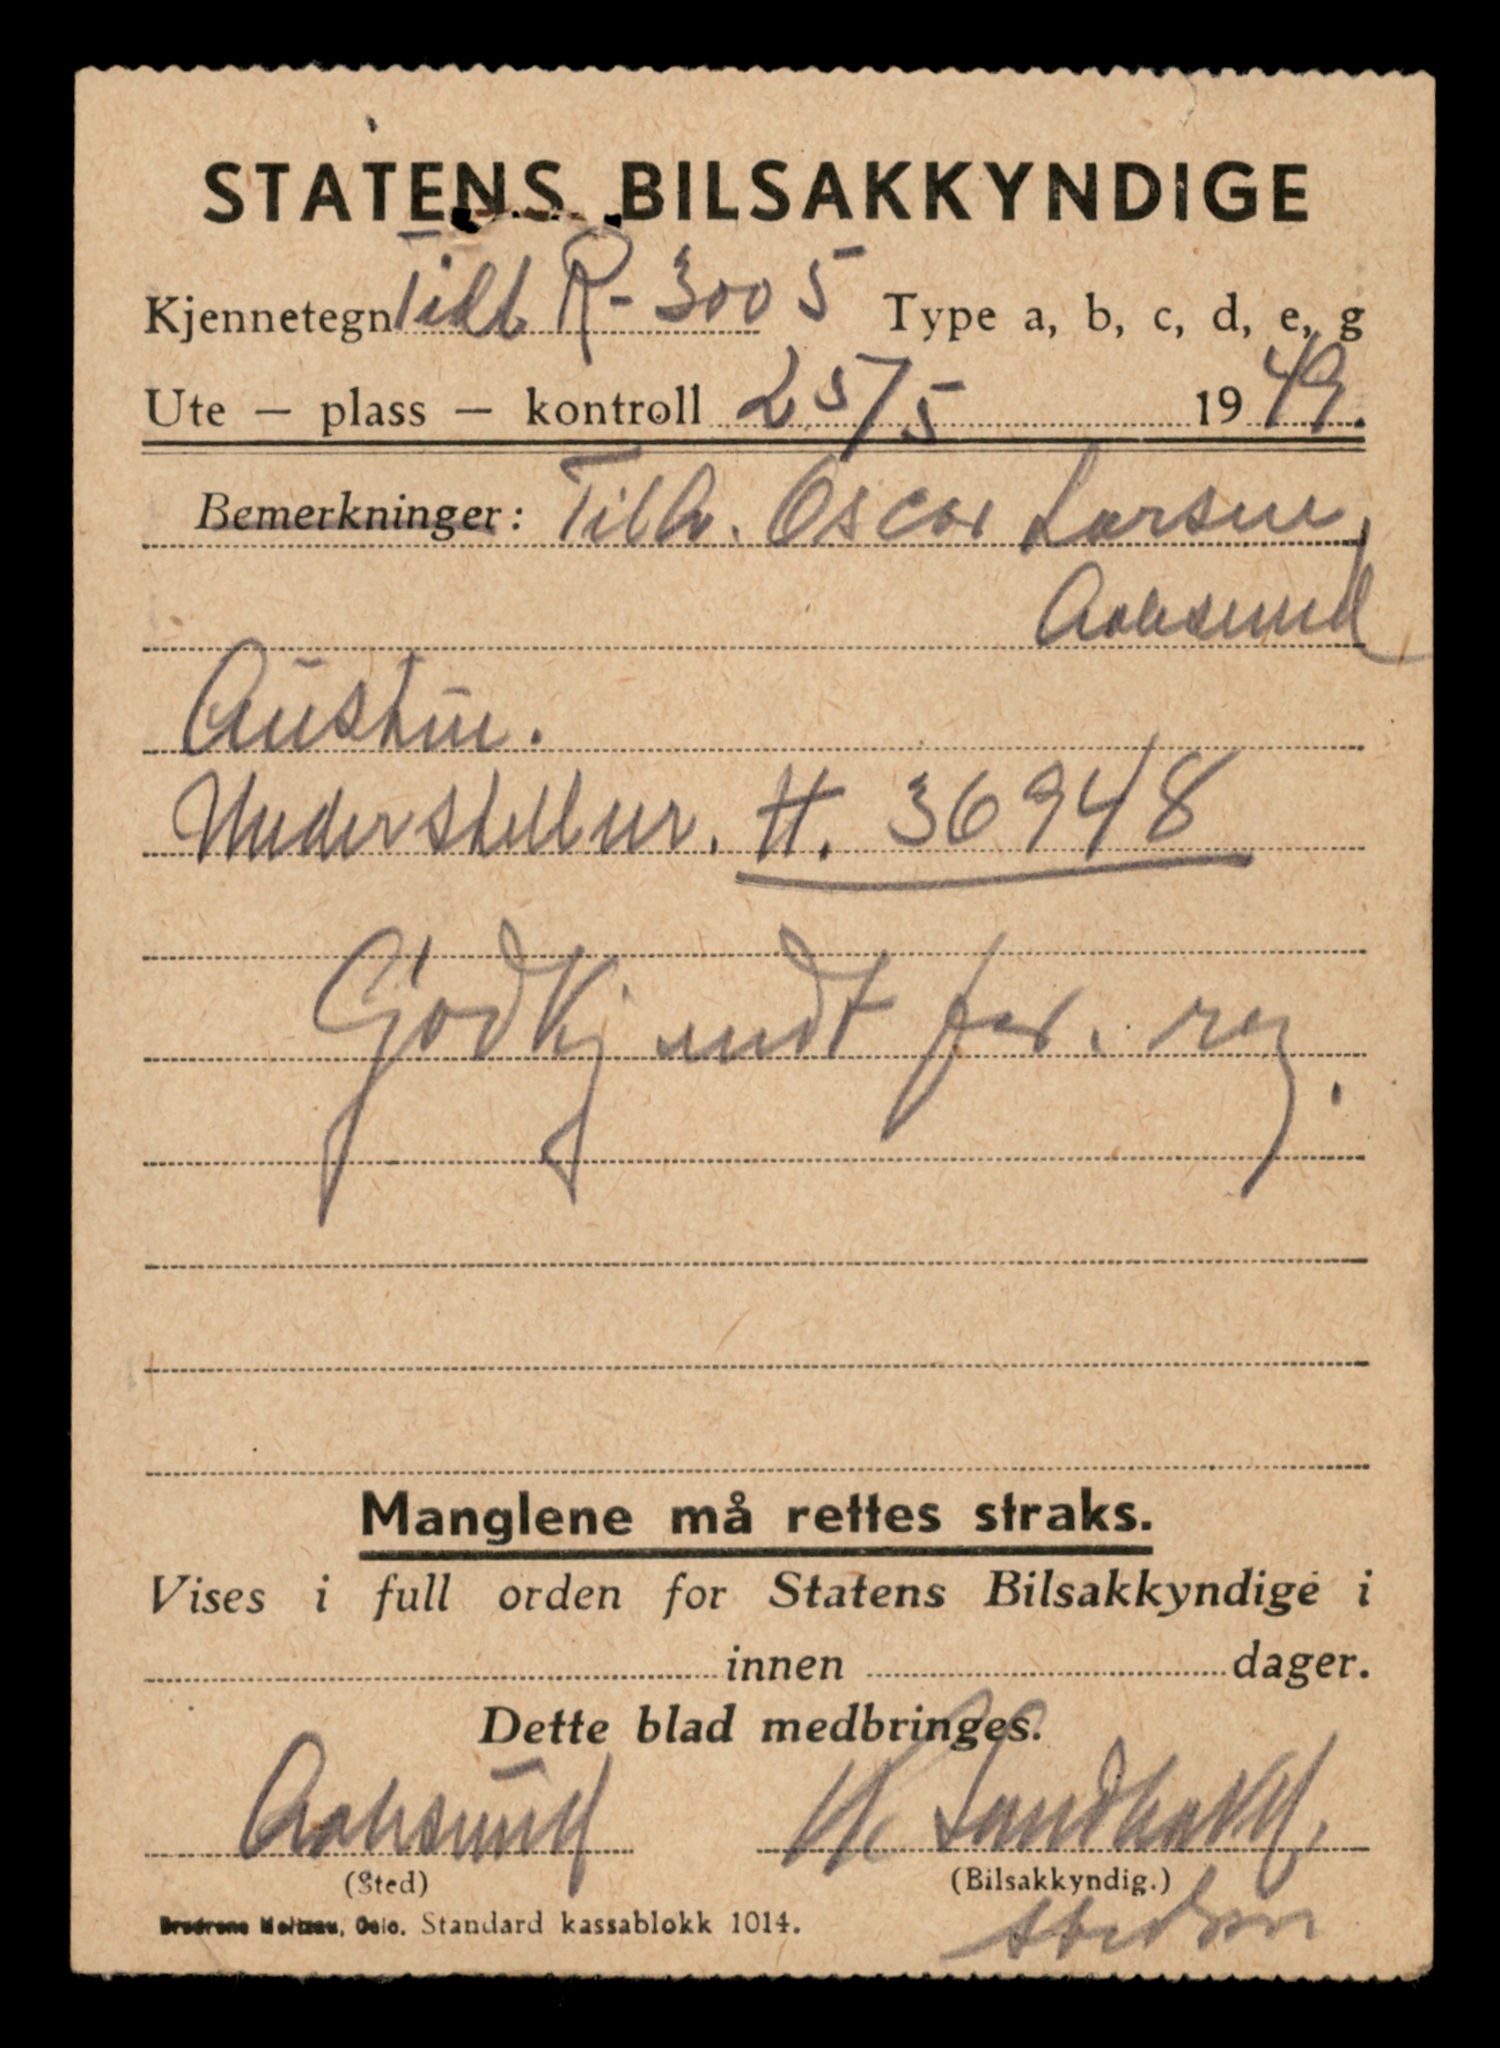 STATENS BILSAKKYNDIGE
Kjennetegn Tidl. R-3005 Type a, b, c, d, e, g
Ute — plass — kontroll 25/5 1949.
Bemerkninger: Tilh. Oscar Larsen,
Aalesund
Austin.
Understell nr. H. 36948
Godkjendt for. reg.
Manglene må rettes straks.
Vises i full orden for Statens Bilsakkyndige i
innen dager.
Dette blad medbringes.
Aalesund
(Sted) (Bilsakkyndig.)
Brødrene Moltzau, Oslo. Standard kassablokk 1014.